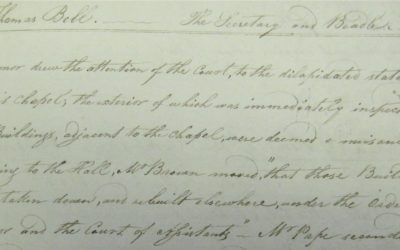 Thomas Bell. — The Secretary and Beadle
nor drew the attention of the Court, to the dilapidated state
is chapel, the exterior of which was immediately inspec
Buildings, adjacent to the chapel, were deemed a nuisanc
ing to the Hall, Mr Brown moved, "that those Buil
taken down, and rebuilt elsewhere, under the
or and the Court of assistants" — Mr Pape secon